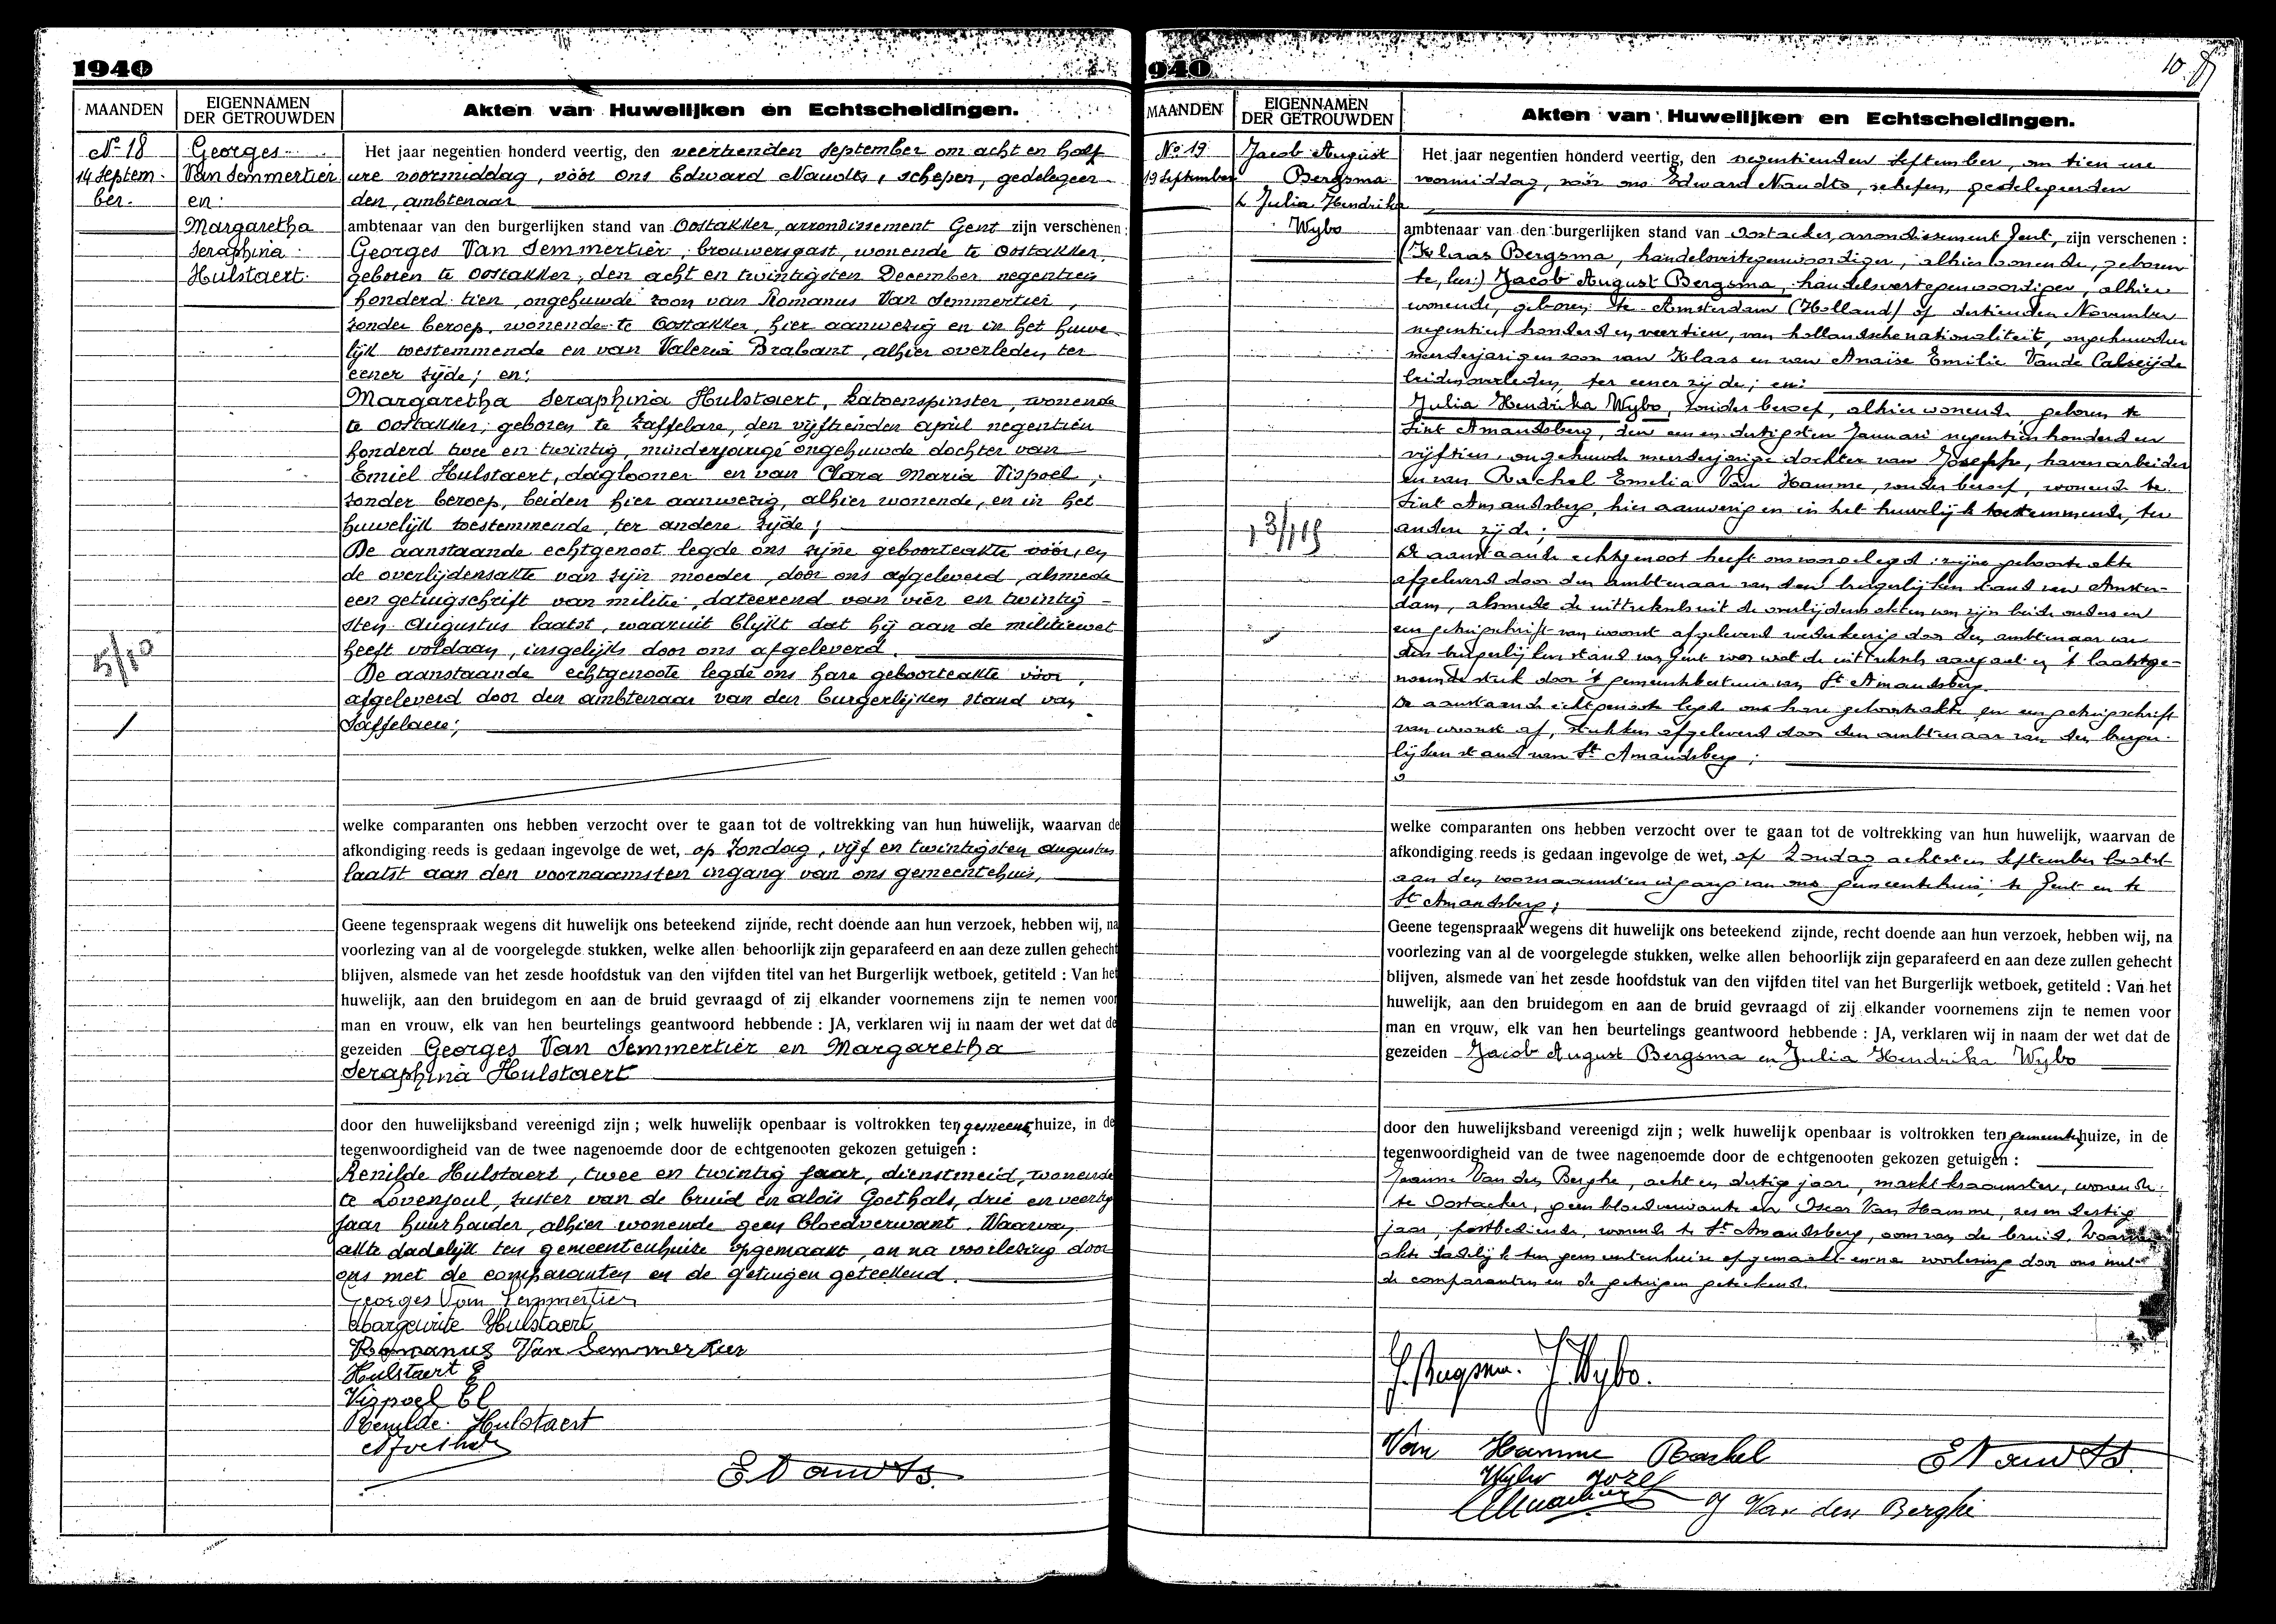 1940
MAANDEN
EIGENNAMEN
DER GETROUWDEN
Akten van Huwelijken en Echtscheidingen.
No 18
14 Septem-
ber.
Georges
Van Semmertier
en
Margaretha
Seraphina
Hulstaert
5/10
Het jaar negentien honderd veertig, den veertienden September om acht en half
ure voormiddag, vóór ons Edward Naudts, schepen, gedelegeer-
den, ambtenaar
ambtenaar van den burgerlijken stand van Oostakker, arrondissement Gent zijn verschenen:
Georges Van Semmertier, brouwersgast, wonende te Oostakker,
geboren te Oostakker, den acht en twintigsten December negentien
honderd tien, ongehuwde zoon van Romanus Van Semmertier,
zonder beroep, wonende te Oostakker, hier aanwezig en in het huwe-
lijk toestemmende en van Valeria Brabant, alhier overleden, ter
eener zijde; en:
Margaretha Seraphina Hulstaert, katoenspinster, wonende
te Oostakker, geboren te Zaffelare, den vijftienden april negentien
honderd twee en twintig, minderjarige ongehuwde dochter van
Emiel Hulstaert, daglooner en van Clara Maria Vispoel,
zonder beroep, beiden hier aanwezig, alhier wonende, en in het
huwelijk toestemmende, ter andere zijde;
De aanstaande echtgenoot legde ons zijne geboorteakte vóór, en
de overlijdensakte van zijn moeder, door ons afgeleverd, alsmede
een getuigschrift van militie, dateerend van vier en twintig-
sten Augustus laatst, waaruit blijkt dat hij aan de militiewet
heeft voldaan, insgelijks door ons afgeleverd.
De aanstaande echtgenoote legde ons hare geboorteakte vóór,
afgeleverd door den ambtenaar van den burgerlijken stand van
Saffelaere;
welke comparanten ons hebben verzocht over te gaan tot de voltrekking van hun huwelijk, waarvan de
afkondiging reeds is gedaan ingevolge de wet, op Zondag, vijf en twintigsten augustus
laatst aan den voornaamsten ingang van ons gemeentehuis,
Geene tegenspraak wegens dit huwelijk ons beteekend zijnde, recht doende aan hun verzoek, hebben wij, na
voorlezing van al de voorgelegde stukken, welke allen behoorlijk zijn geparafeerd en aan deze zullen gehecht
blijven, alsmede van het zesde hoofdstuk van den vijfden titel van het Burgerlijk wetboek, getiteld : Van het
huwelijk, aan den bruidegom en aan de bruid gevraagd of zij elkander voornemens zijn te nemen voor
man en vrouw, elk van hen beurtelings geantwoord hebbende : JA, verklaren wij in naam der wet dat de
gezeiden Georges Van Semmertier en Margaretha
Seraphina Hulstaert
door den huwelijksband vereenigd zijn ; welk huwelijk openbaar is voltrokken ten gemeentehuize, in de
tegenwoordigheid van de twee nagenoemde door de echtgenooten gekozen getuigen :
Renilde Hulstaert, twee en twintig jaar, dienstmeid, wonende
te Lovenjoul, zuster van de bruid en alois Goethals, drie en veertig
jaar huurhouder, alhier wonende geen bloedverwant. Waarvan
akte dadelijk ten gemeentenhuize opgemaakt, en na voorlezing door
ons met de comparanten en de getuigen geteekend.
Georges Van Semmertier
Margerite Hulstaert
Romanus Van Semmertier
Hulstaert E
Vispoel Cl
Renilde Hulstaert
ENaudts.
1940
10
MAANDEN
EIGENNAMEN
DER GETROUWDEN
Akten van Huwelijken en Echtscheidingen.
No 19
19 September
Jacob August
Bergsma
& Julia Hendrika
Wybo
Het jaar negentien honderd veertig, den negentienden September, om tien ure
voormiddag, vóór ons Edward Naudts, schepen, gedelegeerden
ambtenaar van den burgerlijken stand van Oostacker, arrondissement Gent, zijn verschenen :
(Klaas Bergsma, handelsvertegenwoordiger, alhier wonende, geboren
te, lees:) Jacob August Bergsma, handelsvertegenwoordiger, alhier
wonende, geboren te Amsterdam (Holland) op dertienden November
negentien honderd en veertien, van hollandsche nationaliteit, ongehuwden
meerderjarigen zoon van Klaas en van Anaïse Emilie Vande Calseijde
beiden overleden, ter eener zijde; en:
Julia Hendrika Wybo, zonder beroep, alhier wonende geboren te
Sint Amandsberg, den een en dertigsten Januari negentien honderd en
vijftien, ongehuwde meerderjarige dochter van Joseph, havenarbeider
en van Rachel Emelia Van Hamme, zonder beroep, wonende te
Sint Amandsberg, hier aanwezig en in het huwelijk toestemmende, ter
andere zijde;
De aanstaande echtgenoot heeft ons voorgelegd: zijne geboorteakte
afgeleverd door den ambtenaar van den burgerlijken stand van Amster-
dam, alsmede de uittreksels uit de overlijdensakten van zijn beide ouders en
een getuigschrift van woonst afgeleverd wederkeerig door den ambtenaar van
den burgerlijken stand van Gent voor wat de uittreksels aangaat en 't laatstge-
noemde stuk door 't gemeentebestuur van St Amandsberg.
De aanstaande echtgenoote legde ons hare geboorteakte en een getuigschrift
van woonst af, stukken afgeleverd door den ambtenaar van den burger-
lijken stand van St Amandsberg;
welke comparanten ons hebben verzocht over te gaan tot de voltrekking van hun huwelijk, waarvan de
afkondiging reeds is gedaan ingevolge de wet, op Zondag achtsten September laatst
aan den voornaamsten ingang van ons gemeentehuis, te Gent en te
St Amandsberg;
Geene tegenspraak wegens dit huwelijk ons beteekend zijnde, recht doende aan hun verzoek, hebben wij, na
voorlezing van al de voorgelegde stukken, welke allen behoorlijk zijn geparafeerd en aan deze zullen gehecht
blijven, alsmede van het zesde hoofdstuk van den vijfden titel van het Burgerlijk wetboek, getiteld : Van het
huwelijk, aan den bruidegom en aan de bruid gevraagd of zij elkander voornemens zijn te nemen voor
man en vrouw, elk van hen beurtelings geantwoord hebbende : JA, verklaren wij in naam der wet dat de
gezeiden Jacob August Bergsma en Julia Hendrika Wybo
door den huwelijksband vereenigd zijn ; welk huwelijk openbaar is voltrokken ten gemeentehuize, in de
tegenwoordigheid van de twee nagenoemde door de echtgenooten gekozen getuigen :
Jeanne Van den Berghe, acht en dertig jaar, marktkraamster, wonende
te Oostacker, geen bloedverwante en Oscar Van Hamme, zes en dertig
jaar, postbediende, wonende te St Amandsberg, oom van de bruid. Waarvan
akte dadelijk ten gemeentenhuize opgemaakt en na voorlezing door ons met
de comparanten en de getuigen geteekend.
J. Bergsma. J Wybo.
Van Hamme Rachel
ENaudts.
Wybo Jozef
J Van den Berghe